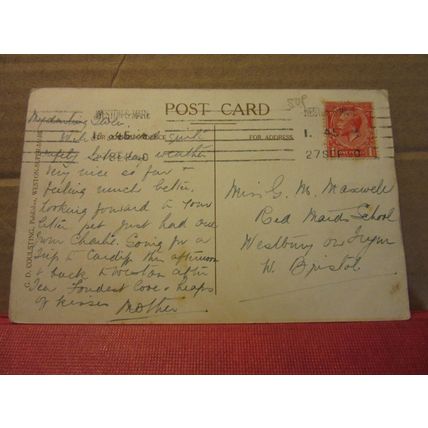 POST CARD
FOR ADDRESS.
1. 45
27 SEP
My darling
quite
safely. Lake had weather
very nice so far &
feeling much better,
looking forward to your
letter pet just had one
from Charlie. Going for a
trip to Cardiff this afternoon
& back to Weston after
Tea Fondest Love & heaps
of kisses Mother
Miss G. M. Maxwell
Red Maids School
Westbury on Trym
W. Bristol
C. D. COULSTING, Publisher, WESTON-SUPER-MARE